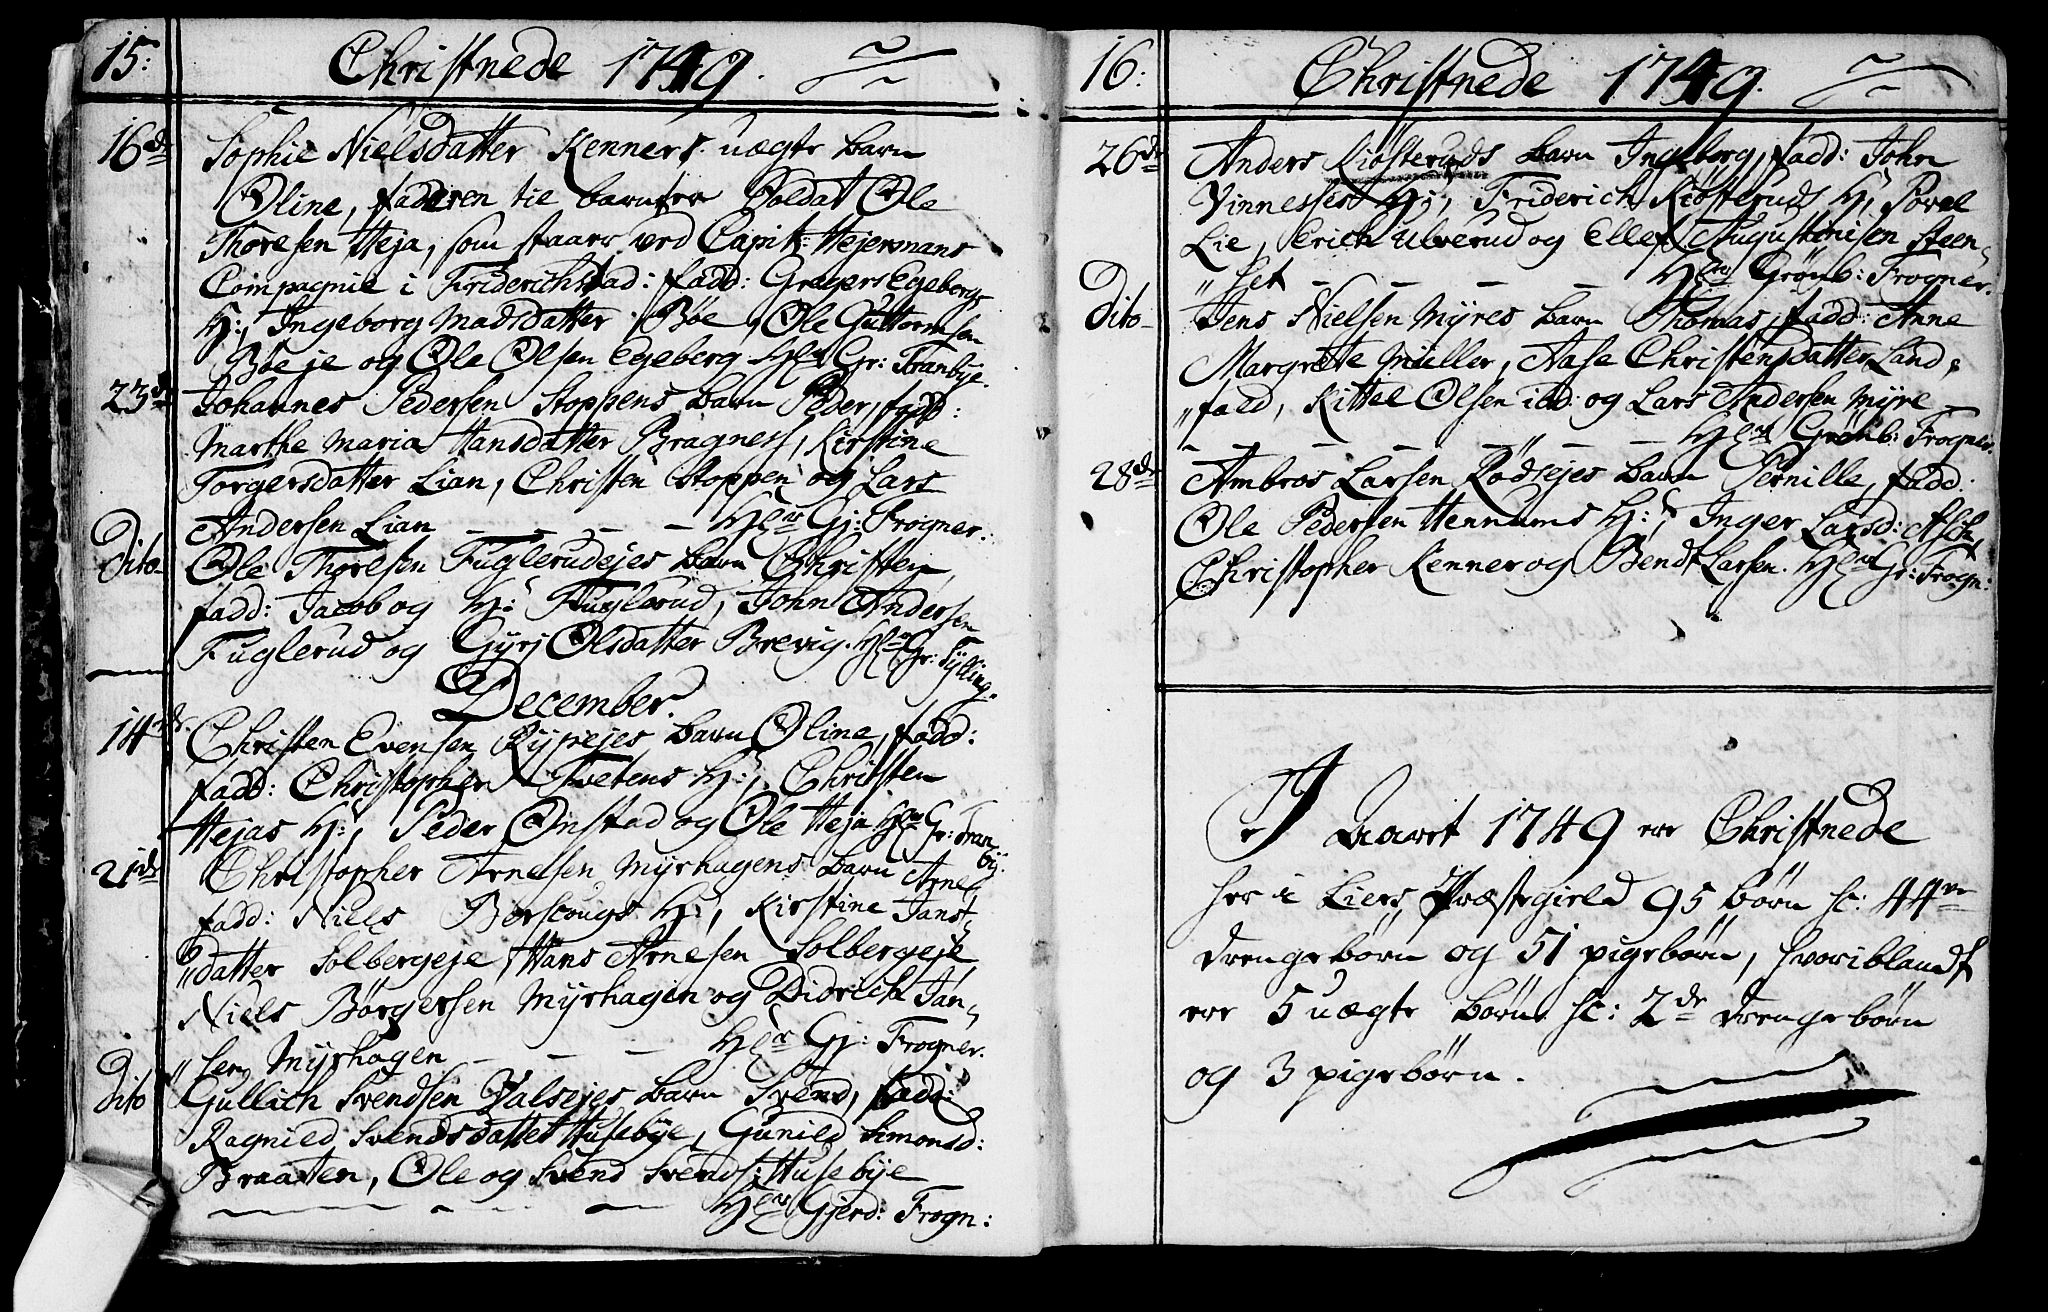 15:
Christnede 1749.
16de Sophie Nielsdatter Kenners uægte barn
Oline, faderen til barnet er Soldat Ole
Thoresen Heja, som staaer ved Capit: Hejermans
Compagnie i Friderichstad: fadd: Gregers Egebergs
H:, Ingeborg Madsdatter Bøe, Ole Guttormsen
Bøeje og Ole Olsen Egeberg Hr Gr: Tranbye.
23de Johannes Pedersen Stoppens barn Peder, fadd:
Marthe Maria Hansdatter Bragness, Kirstine
Torgersdatter Lian, Christen Stoppen og Lars
Andersen Lian – – – – Hr Gj: Frogner.
Dito Ole Thoresen Fuglerudejes barn Christen,
fadd: Jacob og H: Fuglerud, John Andersen
Fuglerud og Gyri Olsdatter Brevig. Hr Gr: Sylling.
December.
14de Christen Evensen Rypejes barn Oline, fadd:
fadd: Christopher Tvetens H:, Christen
Hejas H:, Peder Onstad og Ole Heja Hr Gr: Tran
by.
21de Christopher Arnesen Myrhagens barn Arne,
fadd: Niels Borscougs H:, Kirstine Jans-
"datter Solbergeje, Hans Arnesen Solbergeje,
Niels Børgersen Myrhagen og Didrich Jan-
"sen Myrhagen – – – Hr Gj: Frogner.
Dito Gullich Svendsen Valsejes barn Svend, fadd:
Ragnild Svendsdatter Husebye, Gunild Simonsd:
Braaten, Ole og Svend Svends: Husebye
Hr Gjerd: Frogn:
16:
Christnede 1749.
26de Anders Kiøsteruds barn Ingeborg, fadd: John
Vinnesses H:, Friderich Kiøsteruds H, Povel
Lie, Erich Ulverud og Ellef Augustinisen Steen-
"set – – – – Hr Grønb: Frogner.
Dito Jens Nielsen Myres barn Thomas, fadd: Anne
Margrete Müller, Aase Christensdatter Land-
"fald, Kittel Olsen ibd: og Lars Andersen Myre
– – – – – Hr Grønb: Frogner.
28de Ambros Larsen Rødsejes barn Pernille, fadd:
Ole Pedersen Hennums H:, Inger Larsd: Ask,
Christopher Kenner og Bendt Larsen. Hr Gr: Frogn:
I Aaret 1749 er Christnede
her i Liers Præstegield 95 børn sc: 44re
drengebørn og 51 pigebørn, hvoriblandt
er 5 uægte børn sc: 2de drengebørn
og 3 pigebørn.